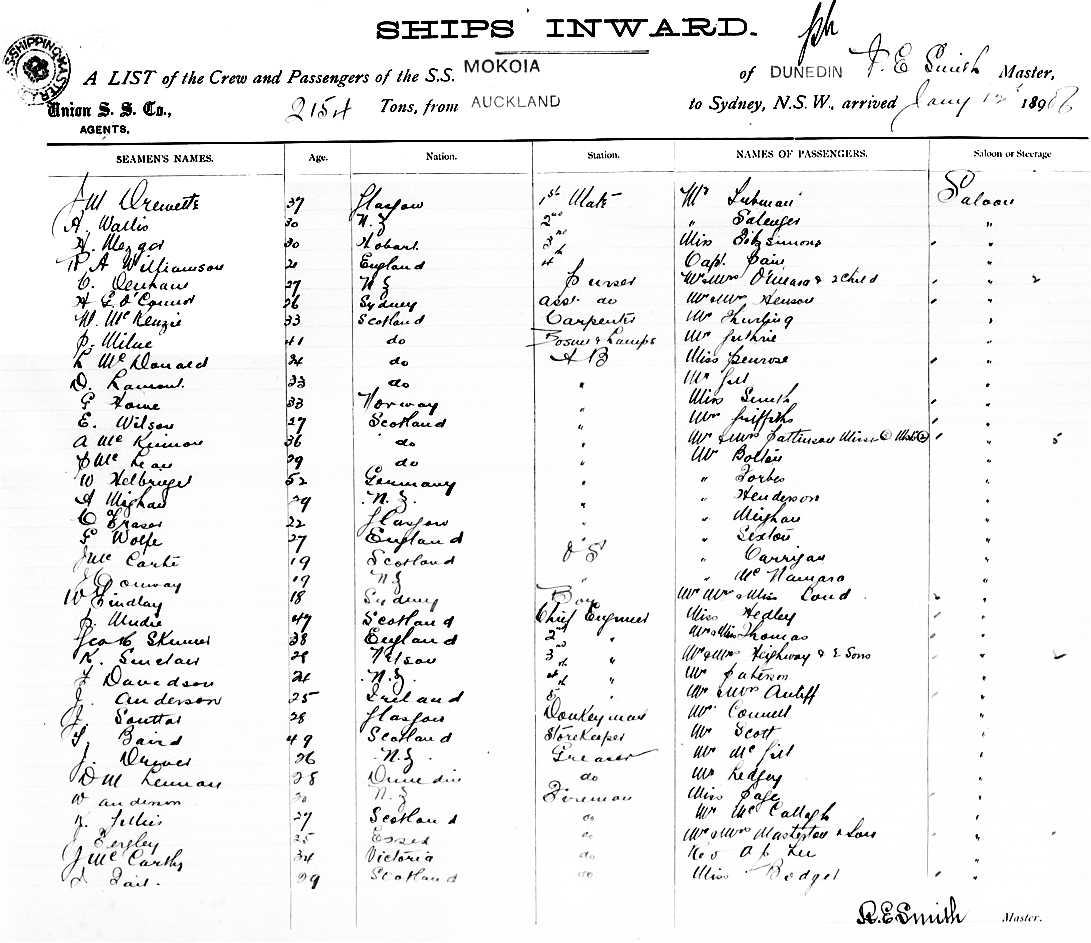 SHIPS INWARD.
A LIST of the Crew and Passengers of the S.S. MOKOIA of DUNEDIN E Smith Master,
Union S. S. Co., 2154 Tons, from AUCKLAND to Sydney, N.S.W., arrived Jany 12 189
AGENTS,
SEAMEN'S NAMES. Age. Nation. Station. NAMES OF PASSENGERS. Saloon or Steerage
J M Drewette 37 Glasgow 1st Mate Mr Lubman Saloon
A. Wallis 30 N.Z 2nd " Salenger "
30 Hobart Miss Fitzsimons "
R A Williamson England 4th Capt. "
C. Denham 27 N Z Purser Mr & Mrs O'Meara & 2 Child " 2
H E O'Connor 26 Sydney asst do Mr & Mrs Henson "
W. McKenzie 33 Scotland Carpenter Mr Thurling "
P. Milne 41 do Bosun & Lamps Mr Guthrie "
L McDonald 24 do A B Miss Penrose "
D. Lamont 33 do " Mr Gill "
G Howe 33 Norway " Miss Smith "
E. Wilson 27 Scotland " Griffiths "
A McKinnon 36 do " Mr & Mrs Pattinson "5
McLean 29 do " Mr Bolton "
W Helbriegel 52 Germany " " Forbes "
A Mighan 29 N.Z. " " Henderson "
C Fraser 22 Glasgow " " Meighan "
G Wolfe 27 England " " Sexton "
J McCarte 19 Scotland O S " Carrigan "
J Conway 19 N Z " " McNamara "
W Findlay 18 Sydney Boy Mr Mrs & Miss "
Mudie 47 Scotland Chief Engineer Miss Hedley "
Geo H Skinner 38 England 2nd " Thomas "
K. Sinclair 28 Nelson 3rd " Mr & Mrs Highway & 2 Sons "
J Davidson 24 N.Z. 4th " Mr Paterson "
J. Anderson 25 Ireland 5 " Mr & Mrs Antiff "
J. Souttar 28 Glasgow Donkeyman Mr Connell "
Baird 49 Scotland Storekeeper Mr Scott "
J. Driver 26 N.Z. Greaser Mr McGill "
D M Lennan 28 Dunedin do Mr Ledger "
W Anderson N.Z Fireman Miss Page "
27 Scotland do Mr McCallagh "
25 Essex do Mr & Mrs Masterton & Son "
J McCarthy 34 Victoria do Rev A Lee "
29 Scotland do Miss Bodger "
R.E Smith Master.